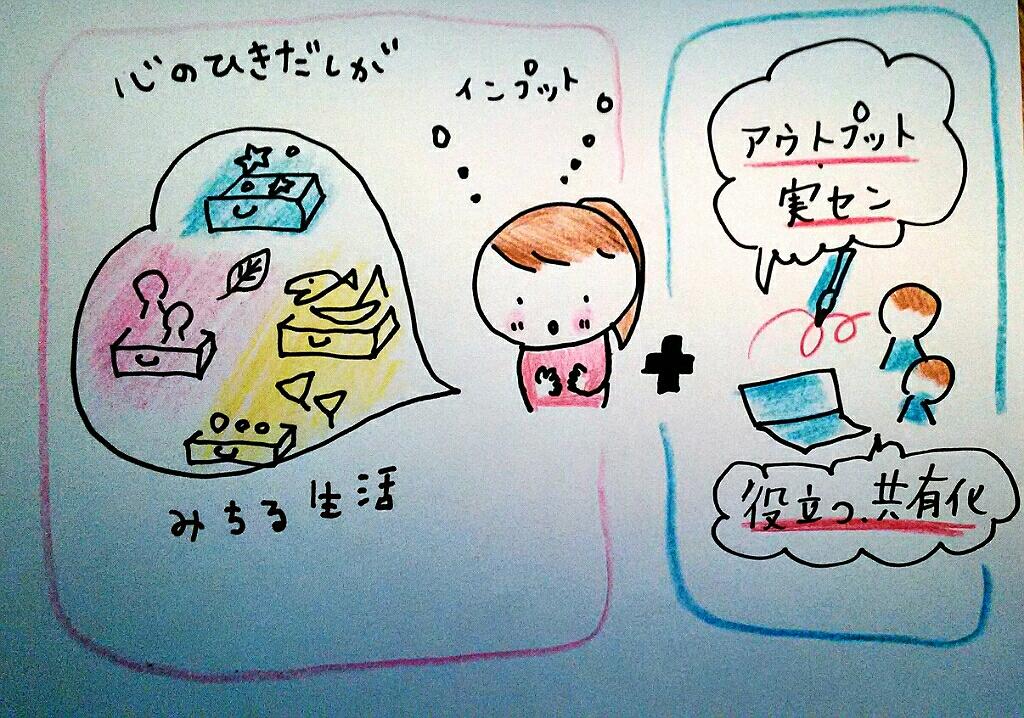 心のひきだしが
インプット
みちる生活
アウトプット
実セン
役立つ、共有化